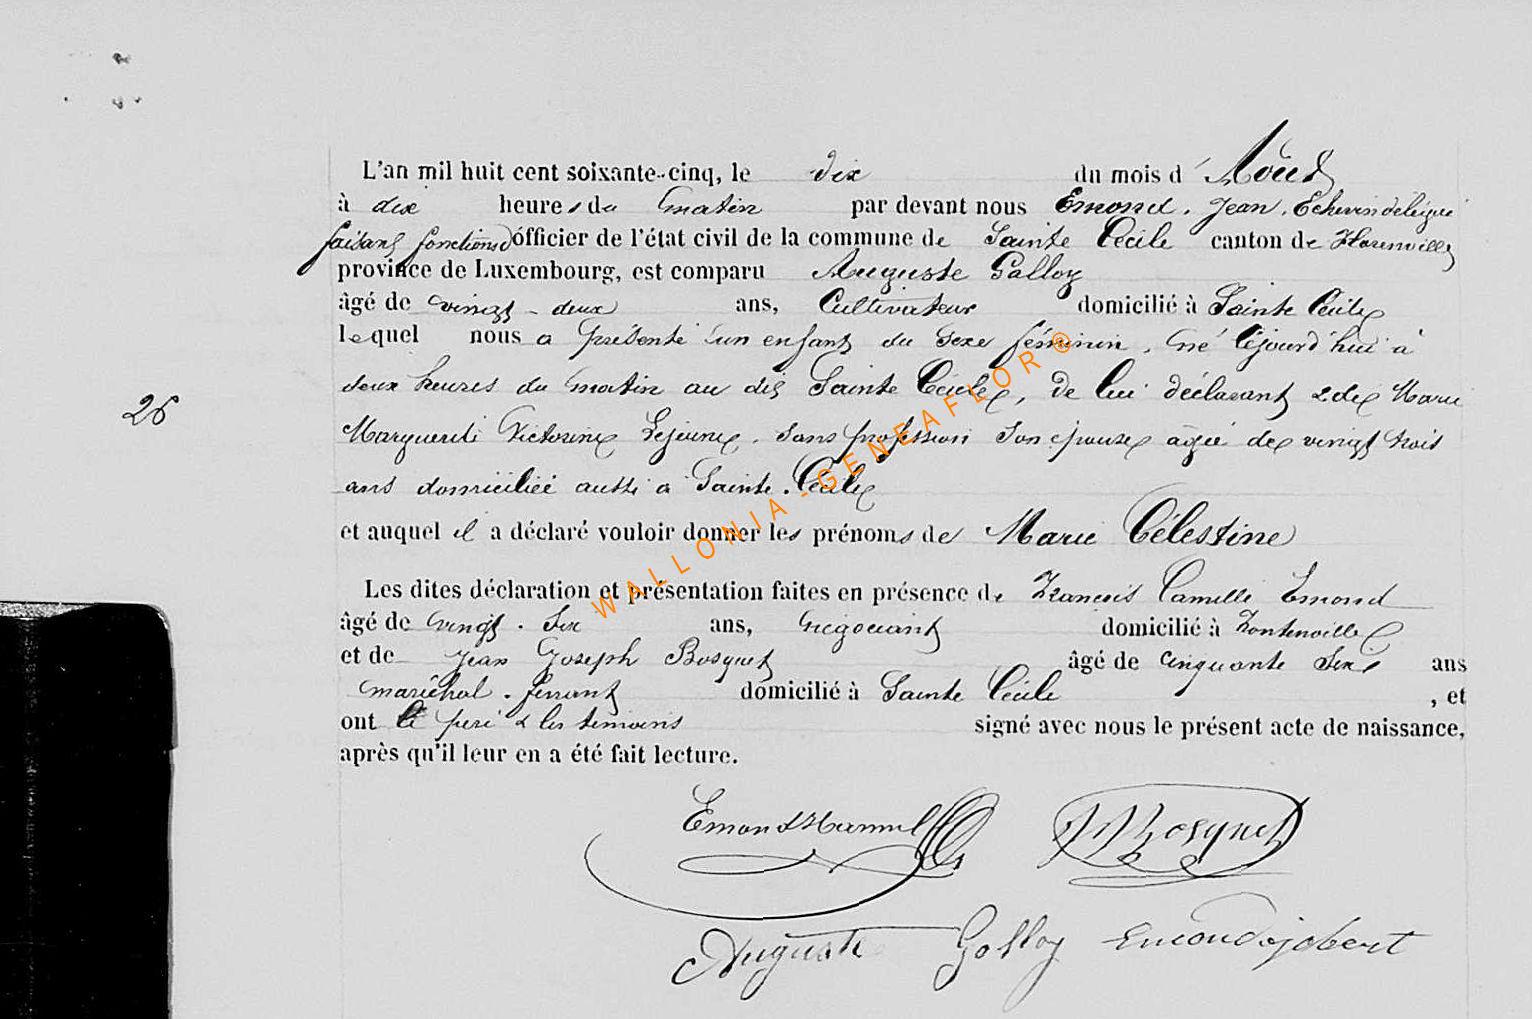 L'an mil huit cent soixante-cinq, le dix du mois d' Août
à dix heures du matin par devant nous Emond, Jean, Echevin délégué
faisant fonctions d'officier de l'état civil de la commune de Sainte Cécile canton de Florenville
province de Luxembourg, est comparu Auguste Golloy
âgé de vingt-deux ans, Cultivateur domicilié à Sainte Cécile
lequel nous a présenté un enfant du sexe féminin, né cejourd'hui à
deux heures du matin au dit Sainte Cécile, de lui déclarant & de Marie
Marguerite Victorine Lejeune, sans profession son épouse âgée de vingt trois
26
ans domiciliée aussi à Sainte-Cécile
et auquel il a déclaré vouloir donner les prénoms de Marie Célestine
Les dites déclaration et présentation faites en présence de François Camille Emond
âgé de vingt-six ans, négociant domicilié à Fontenoille
et de Jean Joseph Bosquet âgé de cinquante six ans
maréchal-ferrant domicilié à Sainte Cécile , et
ont le père & les témoins signé avec nous le présent acte de naissance,
après qu'il leur en a été fait lecture.
Bosquet
Auguste Golloy Emond
WALLONIA-GENEAFLOR®